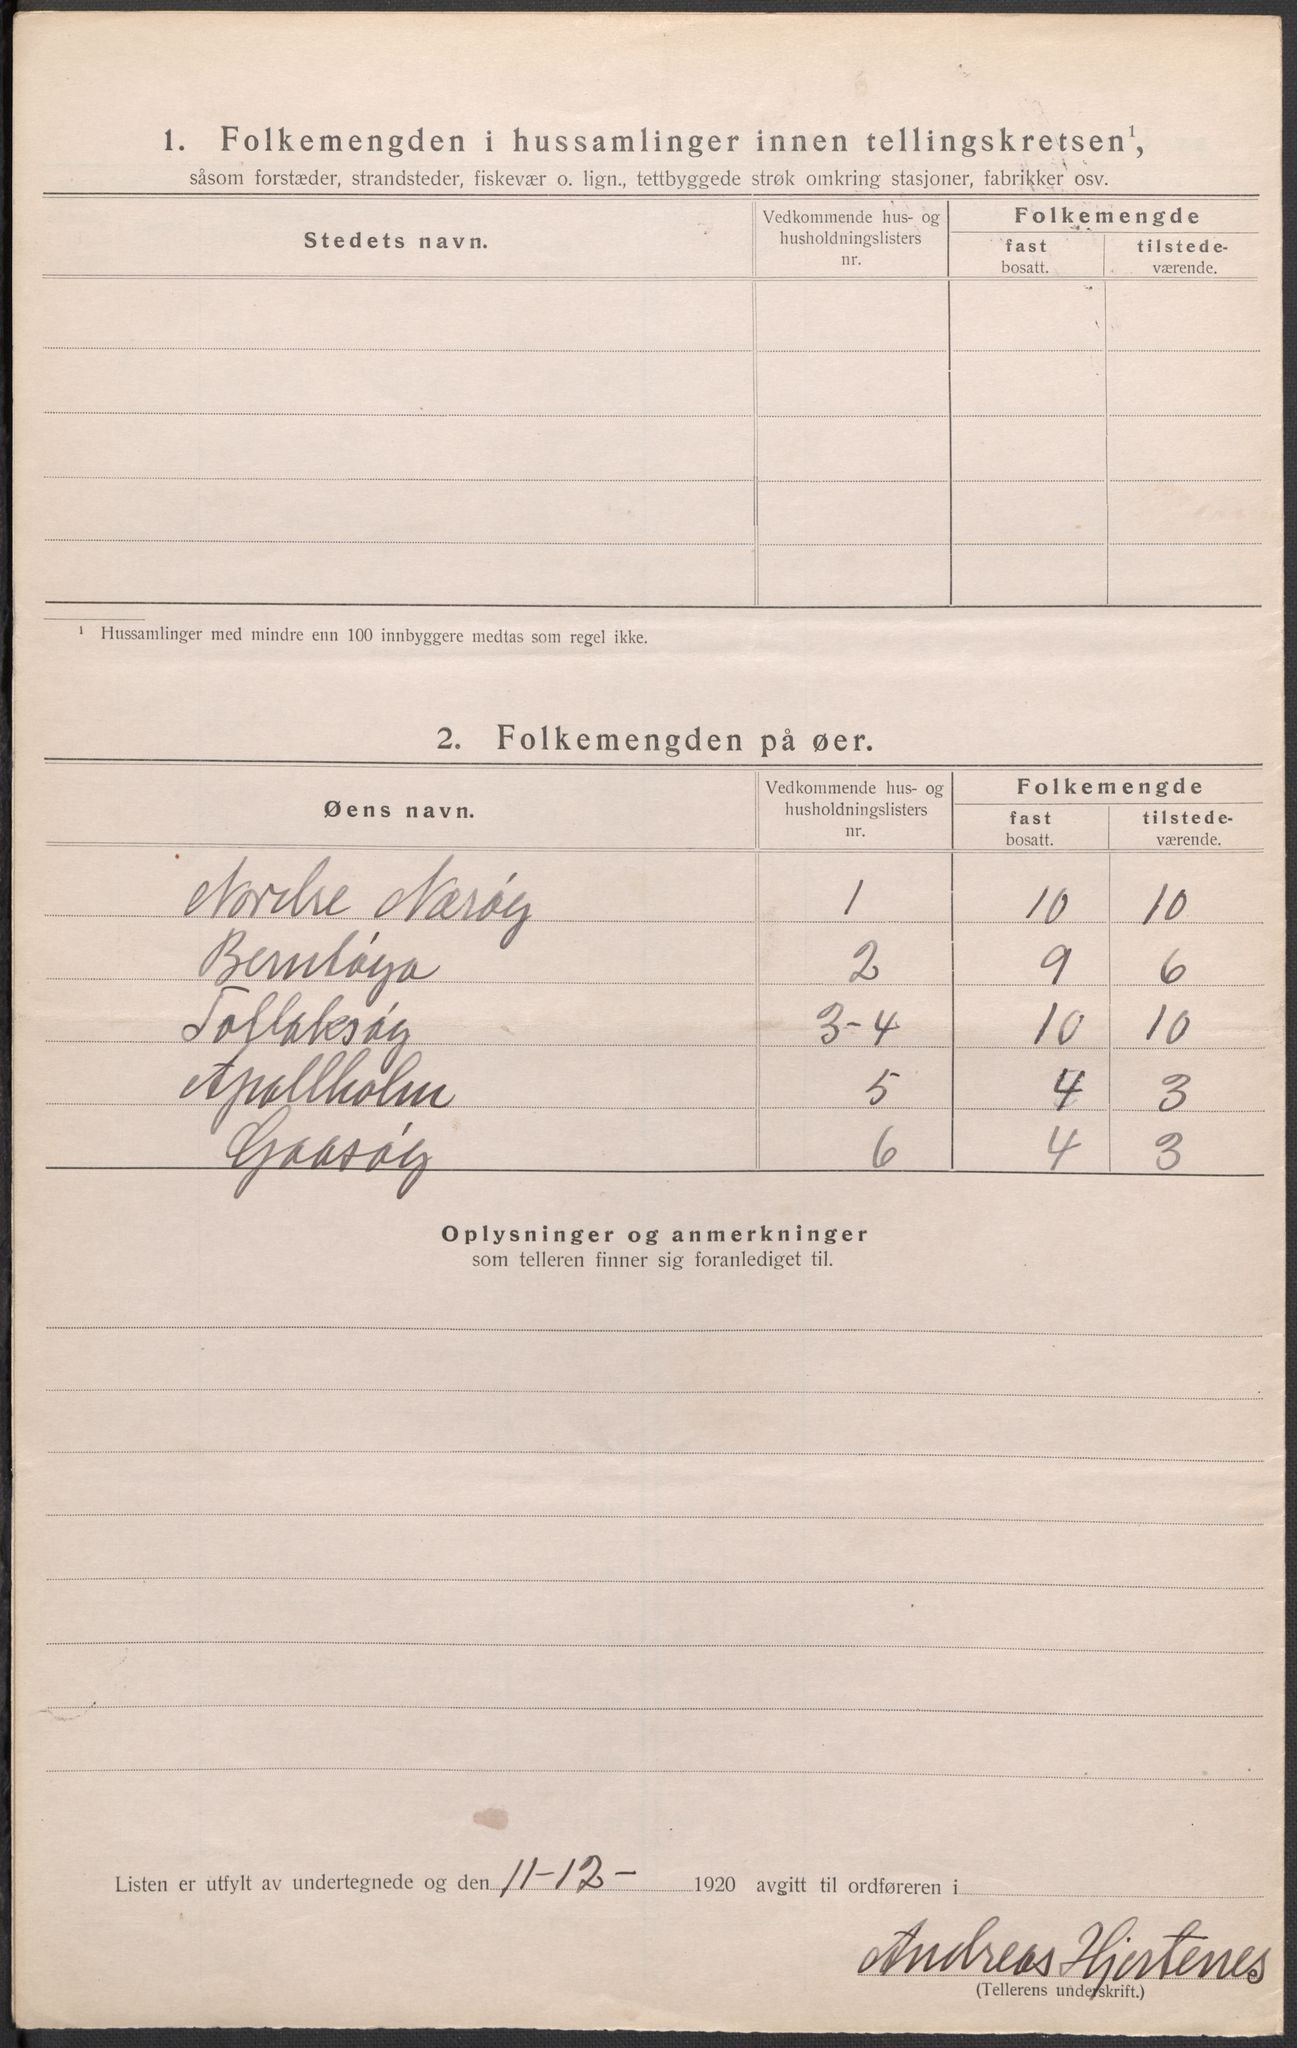 1. Folkemengden i hussamlinger innen tellingskretsen¹,
såsom forstæder, strandsteder, fiskevær o. lign., tettbyggede strøk omkring stasjoner, fabrikker osv.
Stedets navn.
Vedkommende hus- og
husholdningslisters
nr.
Folkemengde
fast
bosatt.
tilstede-
værende.
¹ Hussamlinger med mindre enn 100 innbyggere medtas som regel ikke.
2. Folkemengden på øer.
Øens navn.
Vedkommende hus- og
husholdningslisters
nr.
Folkemengde
fast
bosatt.
tilstede-
værende.
Nordre Nærøy 1 10 10
Berntøya 2 9 6
Tollaksøy 3-4 10 10
Apallholm 5 4 3
Gaasøy 6 4 3
Oplysninger og anmerkninger
som telleren finner sig foranlediget til.
Listen er utfylt av undertegnede og den 11-12- 1920 avgitt til ordføreren i
Andreas Hjertenes
(Tellerens underskrift.)